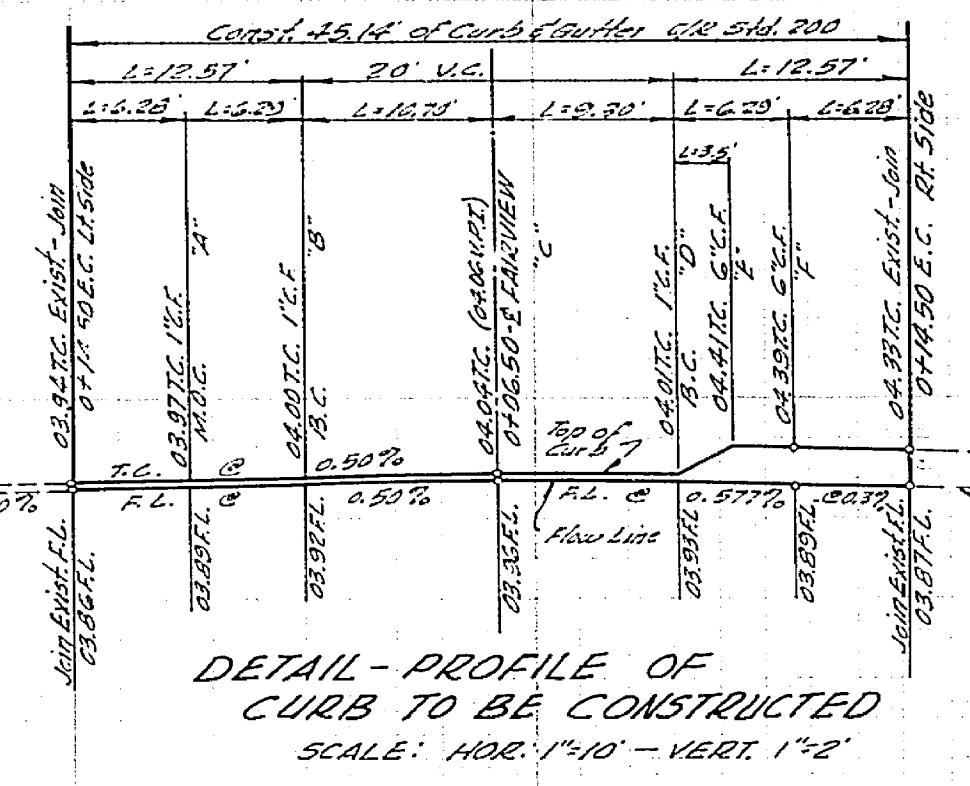 Const. 45.14' of Curb & Gutter C/R Std. 200
L=12.57'
20' V.C.
L=12.57'
L=6.28'
L=6.29'
L=10.70'
L=9.30'
L=6.29'
L=6.28'
L=3.5'
03.94 T.C. Exist.-Join
0+14.50 E.C. Lt. Side
03.97 T.C. 1" C.F.
M.O.C.
"A"
04.00 T.C. 1" C.F.
B.C.
"B"
04.04 T.C. (04.06 V.P.I.)
0+06.50-℄ FAIRVIEW
"C"
04.01 T.C. 1" C.F.
B.C.
"D"
04.41 T.C. 6" C.F.
"E"
04.39 T.C. 6" C.F.
"F"
04.33 T.C. Exist-Join
0+14.50 E.C. Rt. Side
Top of
Curb
T.C. @ 0.50%
F.L. @ 0.50%
F.L. @ 0.577%
@0.3%
0%
Flow Line
Join Exist. F.L.
03.86 F.L.
03.89 F.L.
03.92 F.L.
03.96 F.L.
03.93 F.L.
03.89 F.L.
Join Exist. F.L.
03.87 F.L.
DETAIL - PROFILE OF
CURB TO BE CONSTRUCTED
SCALE: HOR. 1"=10' - VERT. 1"=2'